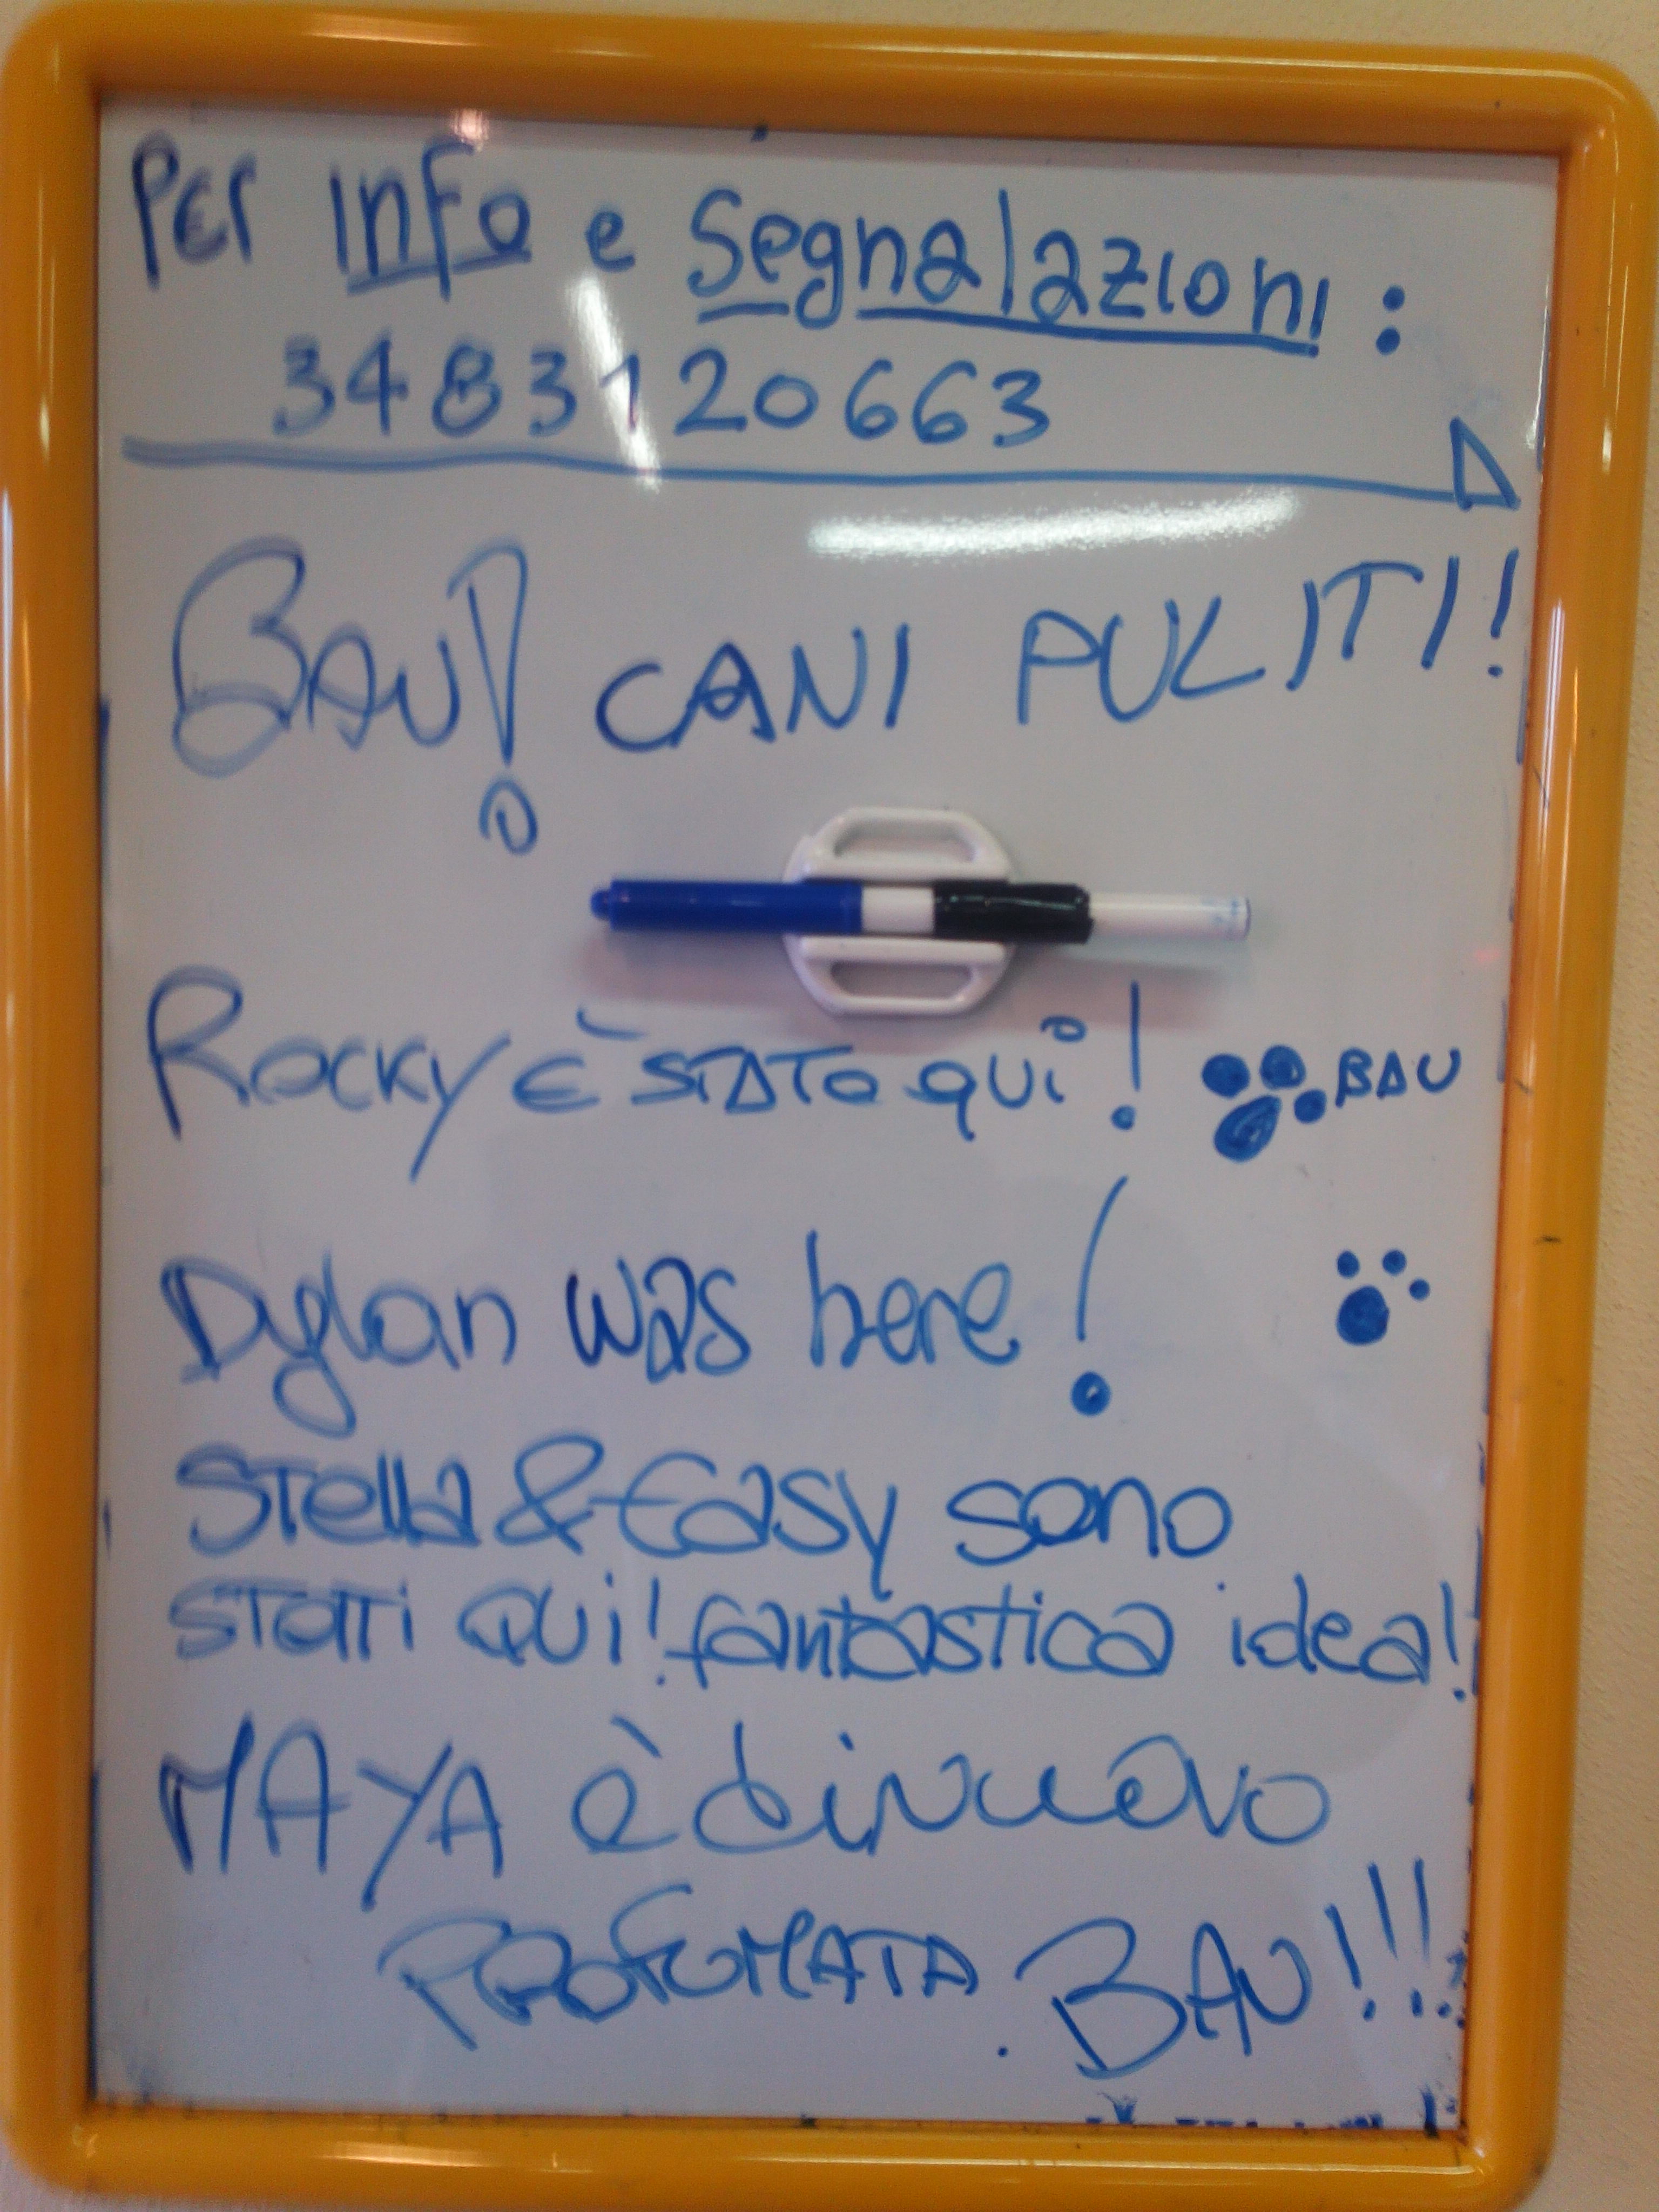 Per info e Segnalazioni:
3483120663
BAU! CANI PULITI!
ROCKY È STATO QUI! BAU
Dylan was here!
Stella & Easy sono
stati QUI! fantastica idea!
MAYA è di nuovo
PROFUMATA. BAU!!!